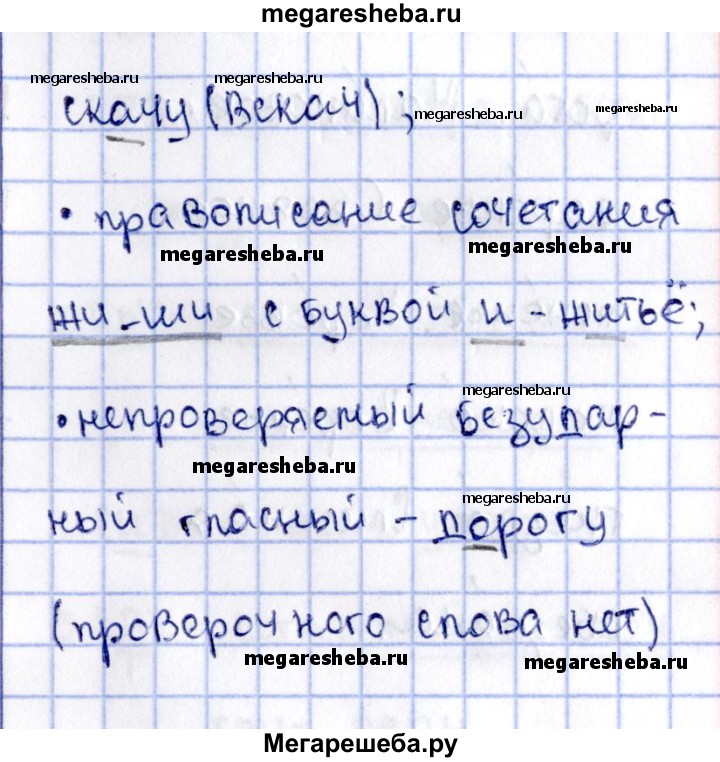 megaresheba.ru
megaresheba.ru megaresheba.ru
скачу (вскач);
megaresheba.ru megaresheba.ru
• правописание сочетания
megaresheba.ru megaresheba.ru
жи-ши с буквой и - житьё;
megaresheba.ru
• непроверяемый безудар-
megaresheba.ru
megaresheba.ru
ный гласный - дорогу
(проверочного слова нет)
megaresheba.ru megaresheba.ru
Мегарешеба.ру